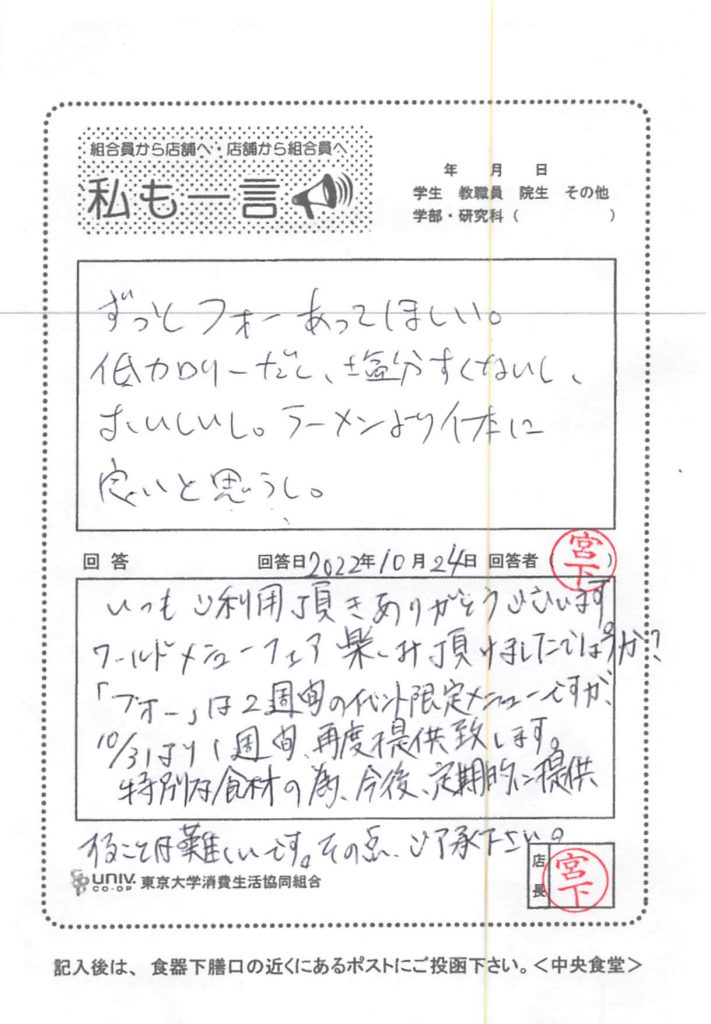 組合員から店舗へ・店舗から組合員へ
私も一言
年 月 日
学生 教職員 院生 その他
学部・研究科（ ）
ずっとフォーあってほしい。
低カロリーだし、塩分すくないし、
おいしいし。ラーメンより体に
良いと思うし。
回答 回答日2022年10月24日 回答者（宮下）
いつもご利用頂きありがとうございます。
ワールドメニューフェア楽しみ頂けましたでしょうか？
「フォー」は2週間のイベント限定メニューですが、
10/31より1週間、再度提供致します。
特別な食材の為、今後、定期的に提供
することは難しいです。その点、ご了承下さい。
UNIV. CO-OP 東京大学消費生活協同組合
店長 宮下
記入後は、食器下膳口の近くにあるポストにご投函下さい。＜中央食堂＞